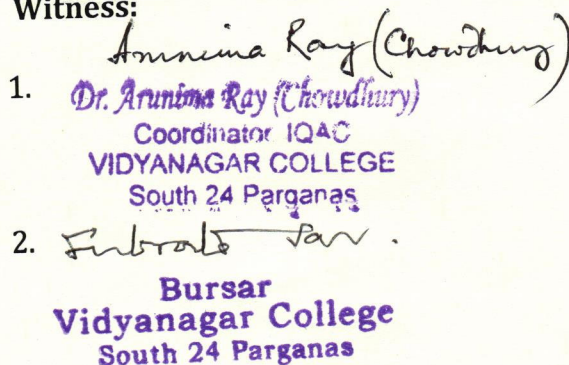 Witness:
Arunima Ray (Chowdhury)
1.
Dr. Arunima Ray (Chowdhury)
Coordinator IQAC
VIDYANAGAR COLLEGE
South 24 Parganas
2.
Bursar
Vidyanagar College
South 24 Parganas